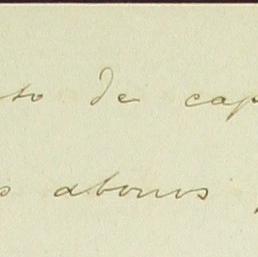 so de cap
s abonos